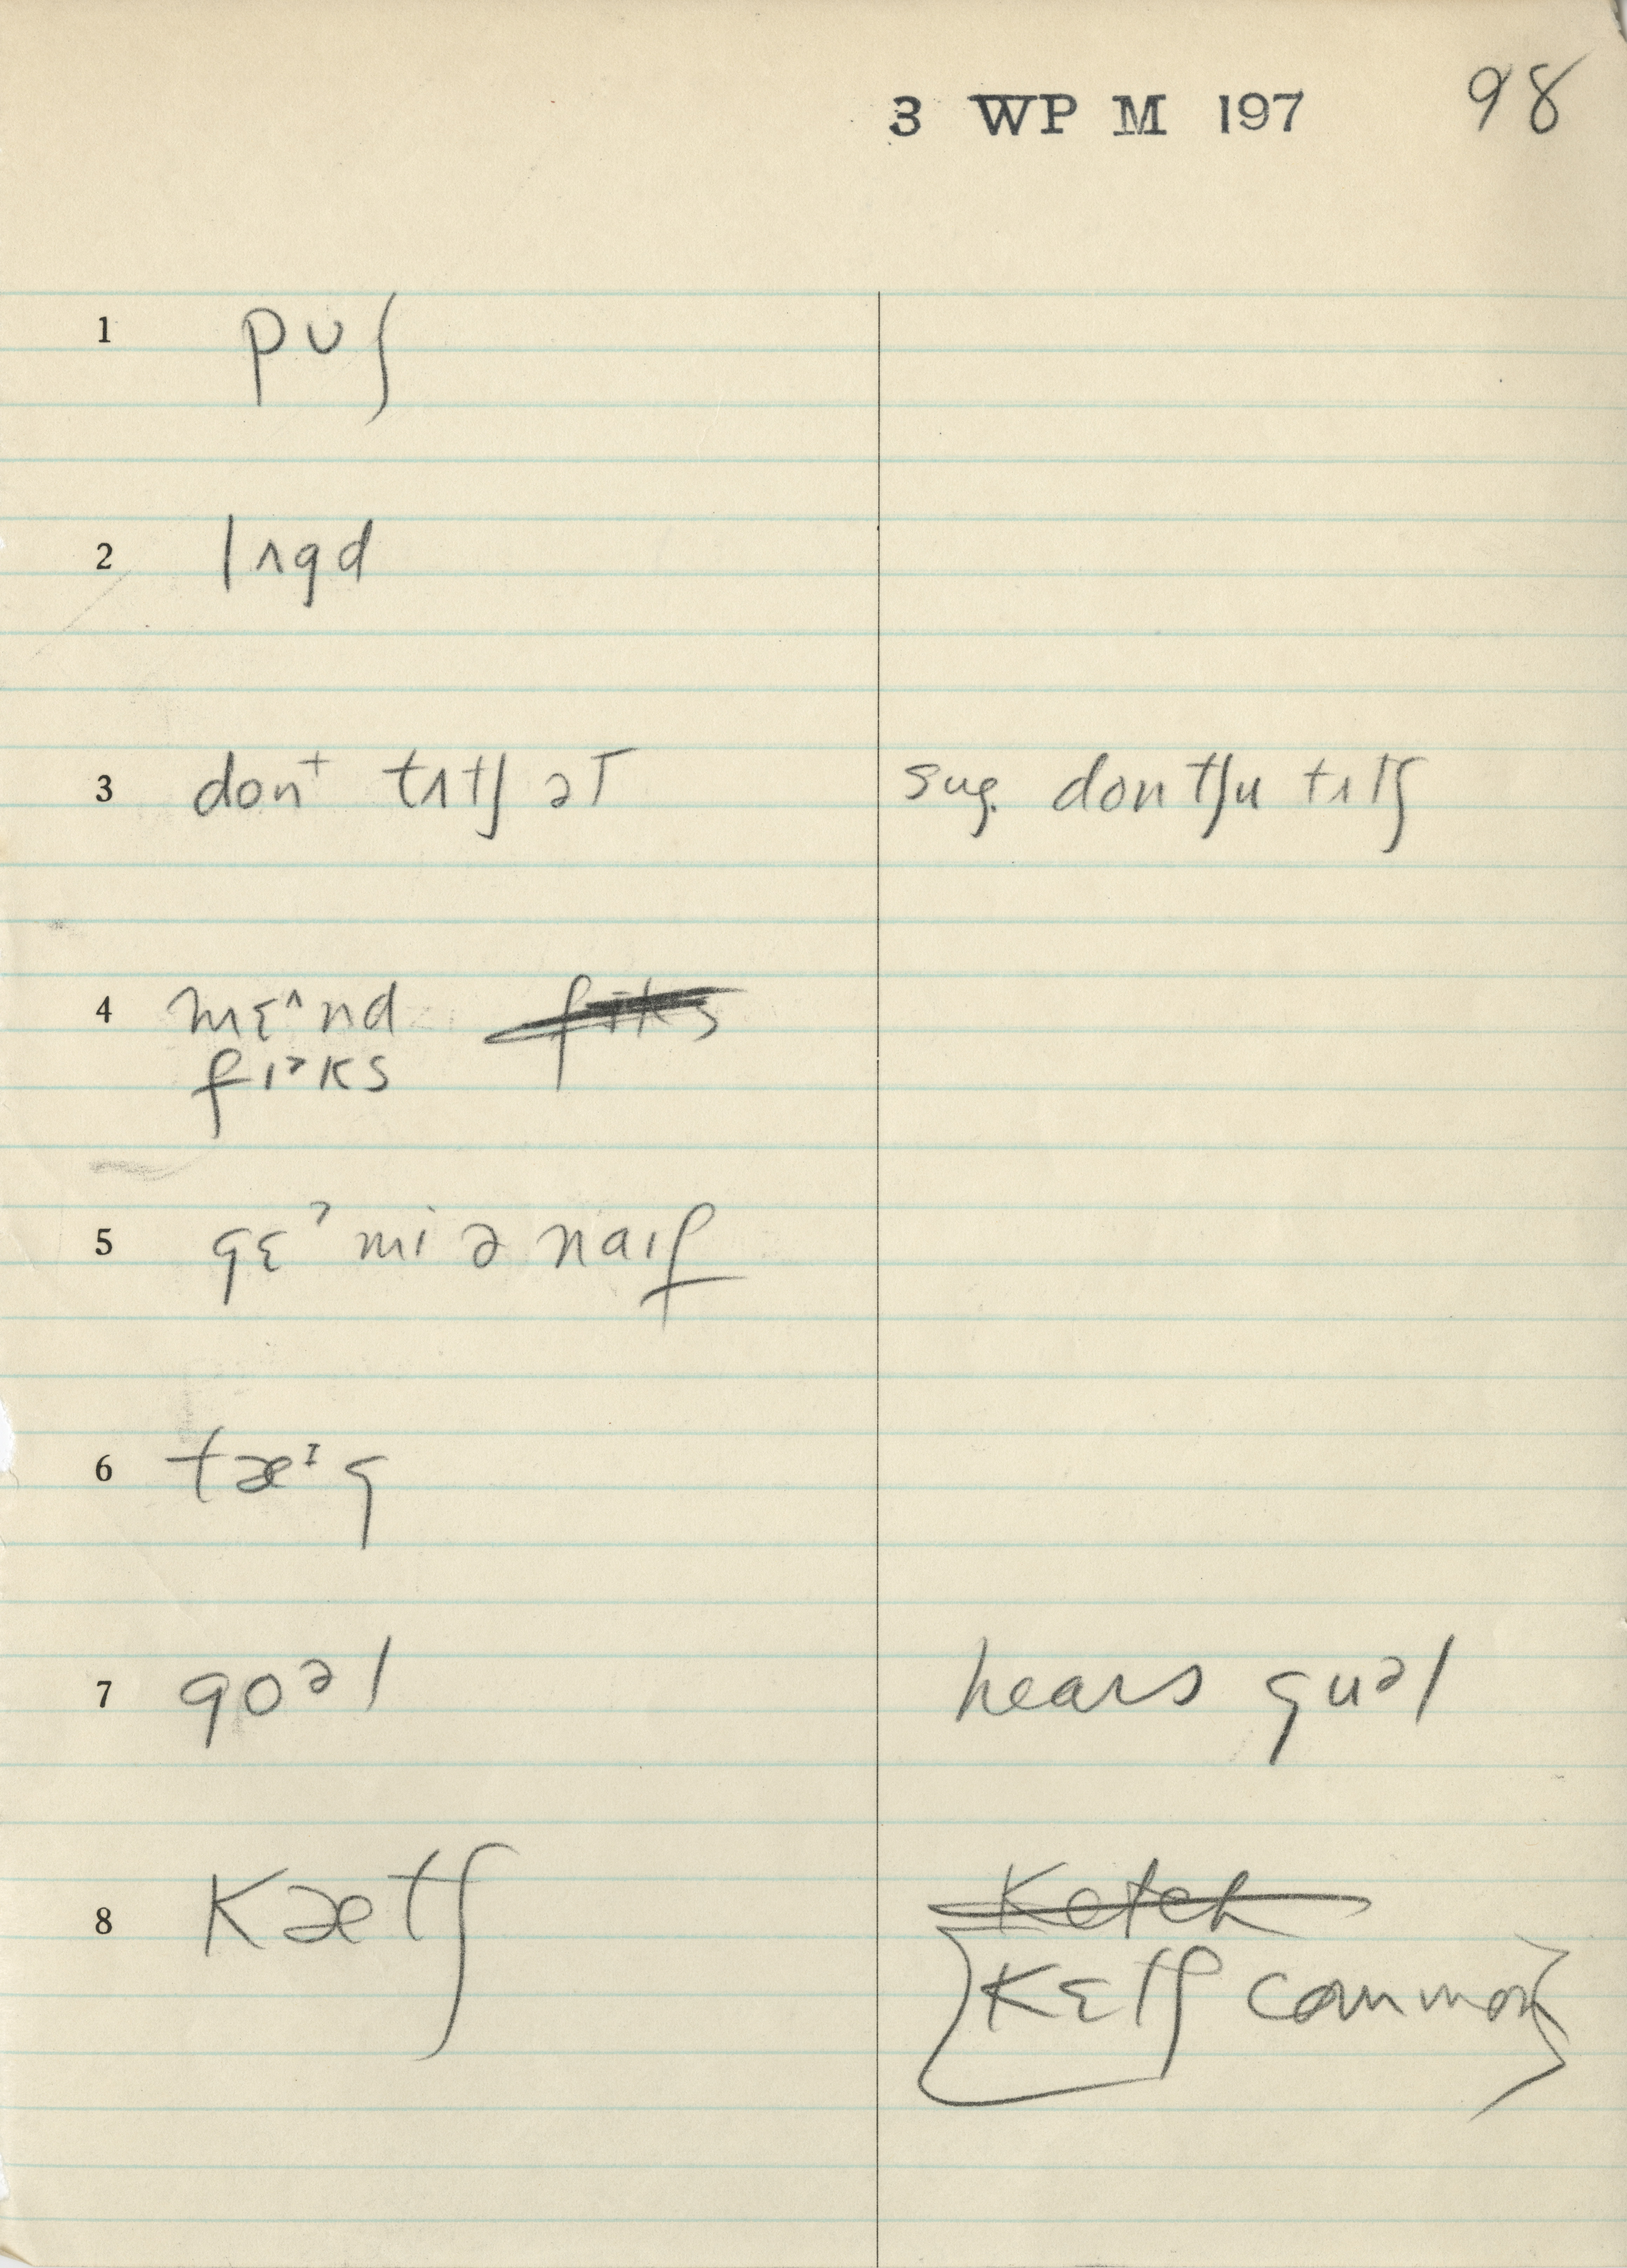 3 WP M 197 98
1 pʊʃ
2 lʌgd
3 donᵗ tʌtʃ ət sug. dontʃu tʌtʃ
4 mɛ^nd fɪks
fɪᵊks
5 gɛˀ mi ə naɪf
6 tæᴵg
7 goᵊl hears guᵊl
8 kætʃ Ketch
kɛtʃ common